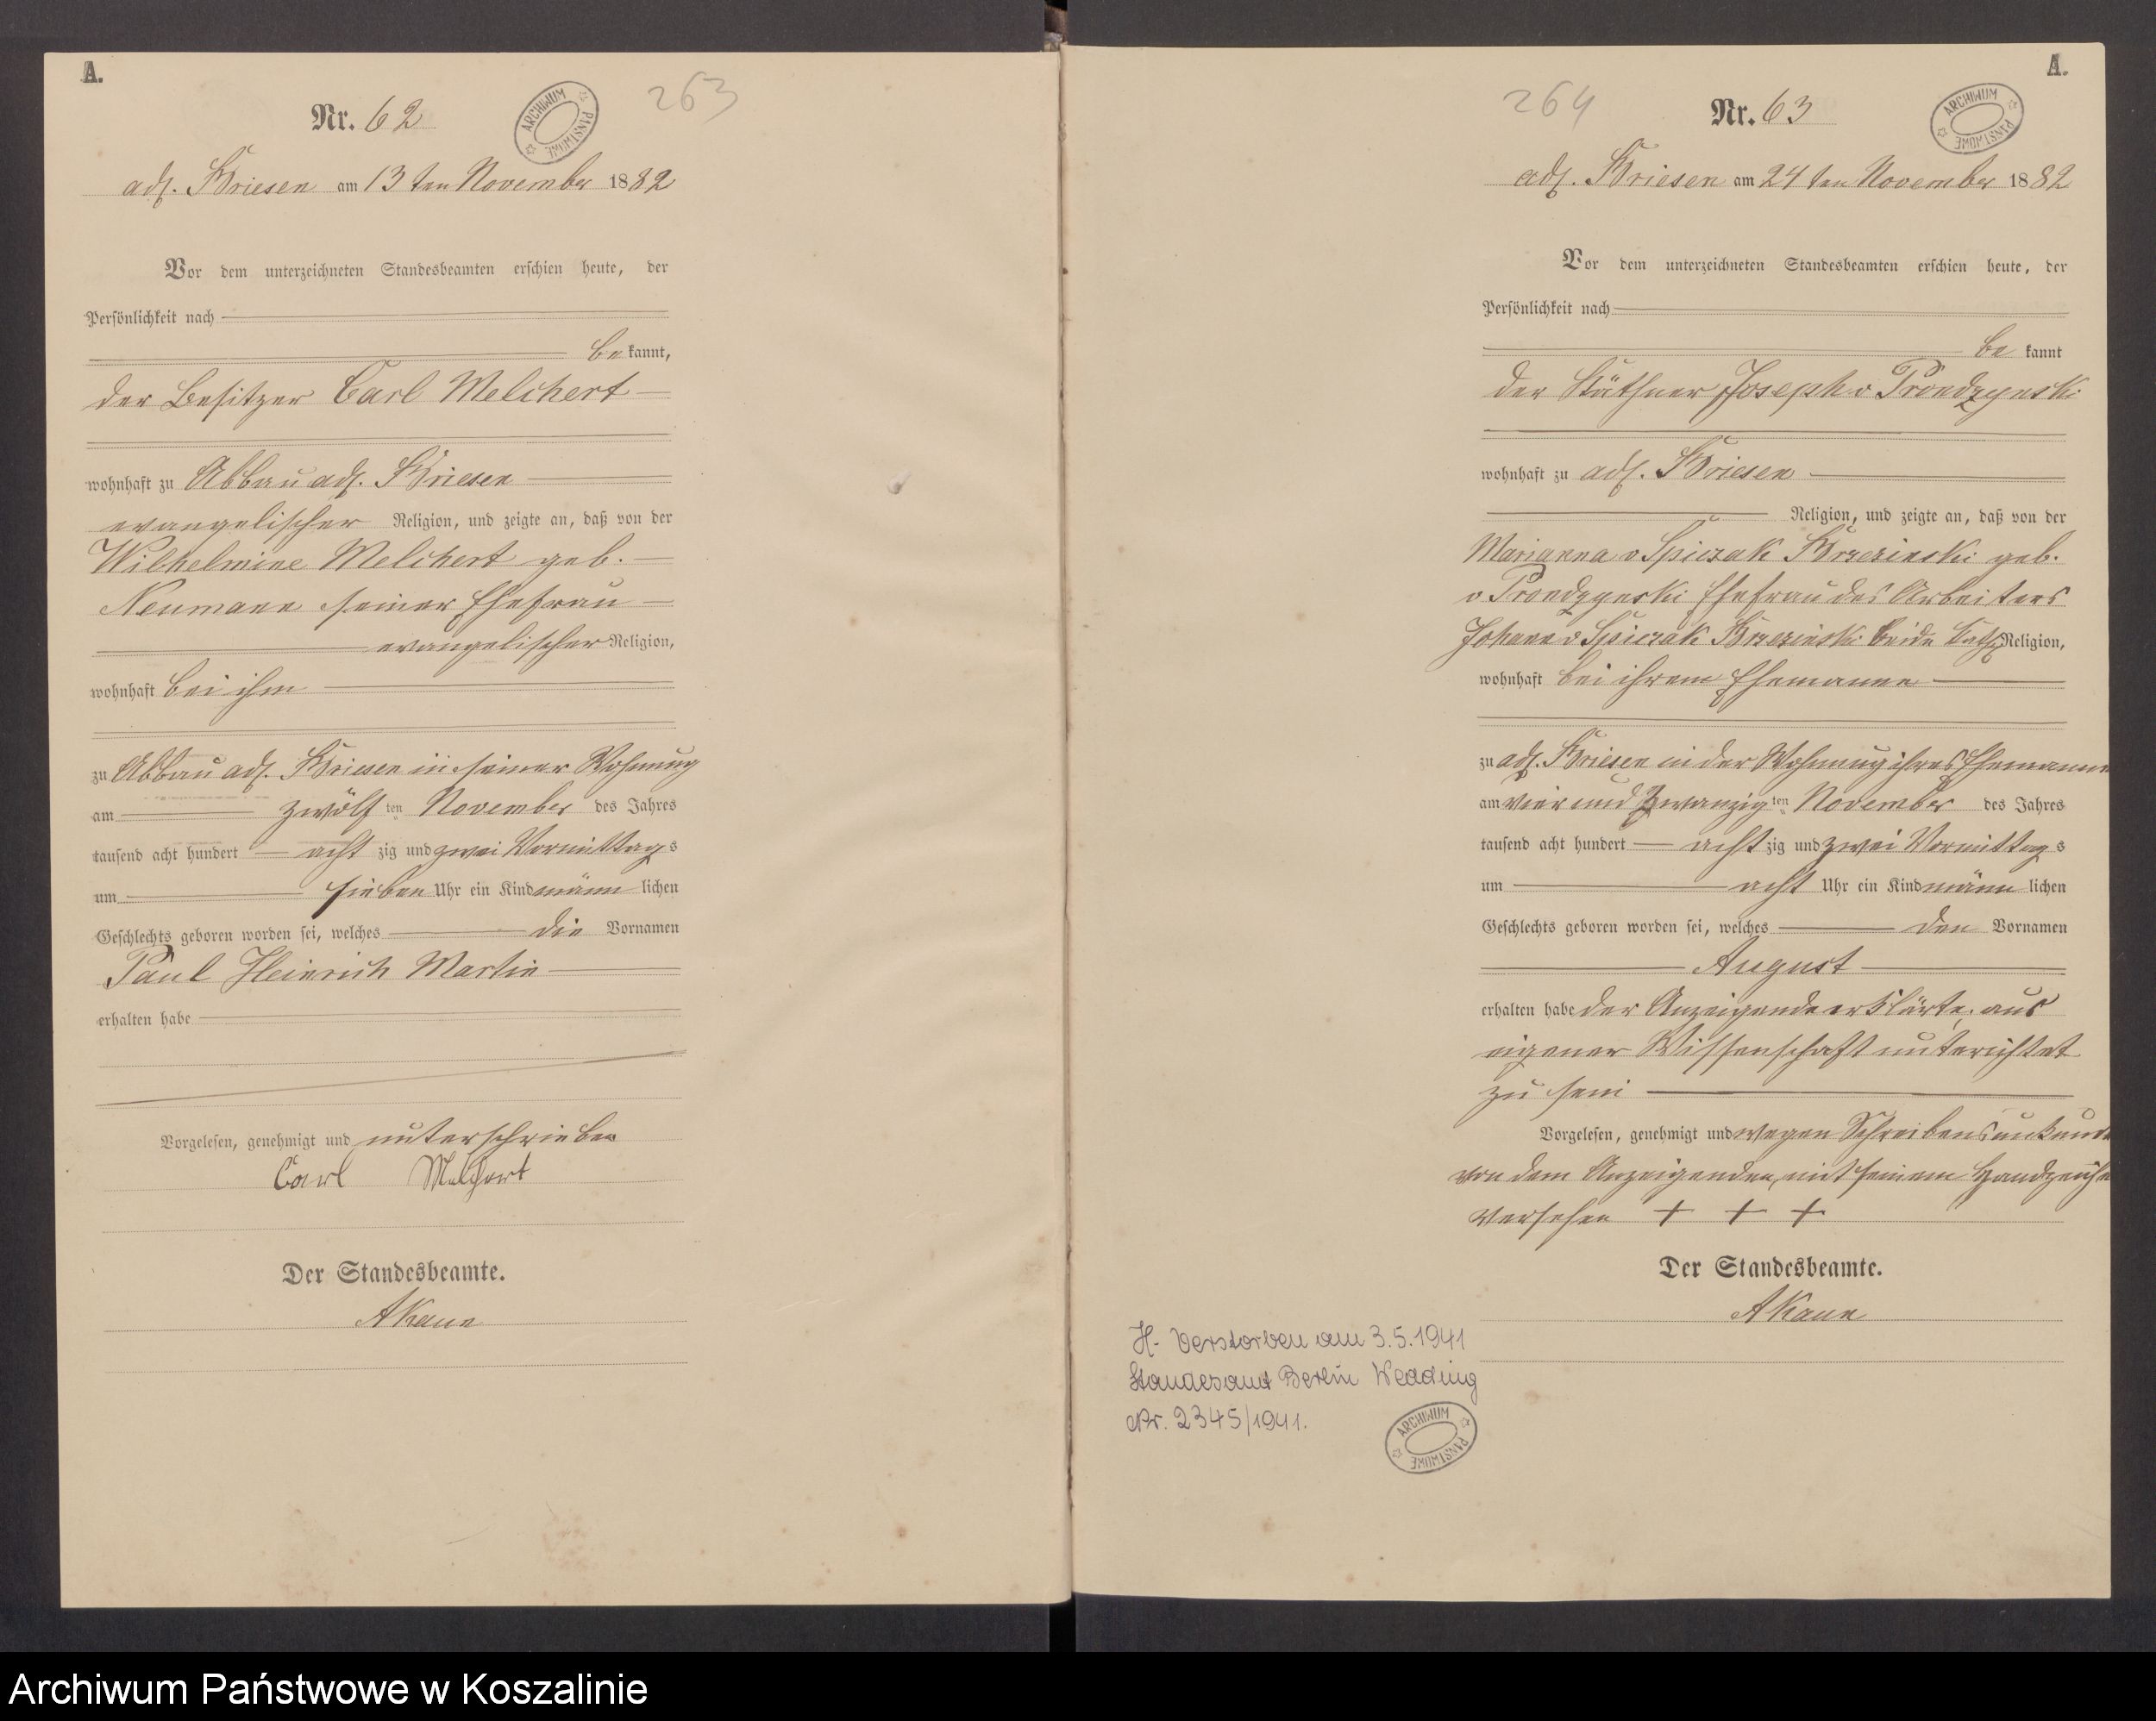 A.
Nr. 62
263
ARCHIWUM PAŃSTWOWE
adl. Briesen am 13 ten November 1882
Vor dem unterzeichneten Standesbeamten erschien heute, der
Persönlichkeit nach
bekannt,
der Besitzer Carl Melchert
wohnhaft zu Abbau adl. Briesen
evangelischer Religion, und zeigte an, daß von der
Wilhelmine Melchert geb.
Neumann seiner Ehefrau
evangelischer Religion,
wohnhaft bei ihm
zu Abbau adl. Briesen in seiner Wohnung
am zwölf ten November des Jahres
tausend acht hundert acht zig und zwei Vormittags
um sieben Uhr ein Kind männ lichen
Geschlechts geboren worden sei, welches die Vornamen
Paul Heinrich Martin
erhalten habe
Vorgelesen, genehmigt und unterschrieben
Carl Melchert
Der Standesbeamte.
A Kann
A.
264
Nr. 63
ARCHIWUM PAŃSTWOWE
adl. Briesen am 24 ten November 1882
Vor dem unterzeichneten Standesbeamten erschien heute, der
Persönlichkeit nach
be kannt
der Käthner Joseph v Prondzynski
wohnhaft zu adl. Briesen
Religion, und zeigte an, daß von der
Marianna v Spiczak Brzezinski geb.
v Prondzynski Ehefrau des Arbeiters
Johann v Spiczak Brzezinski beide kath. Religion,
wohnhaft bei ihrem Ehemanne
zu adl. Briesen in der Wohnung ihres Ehemannes
am vier und zwanzig ten November des Jahres
tausend acht hundert acht zig und zwei Vormittags
um acht Uhr ein Kind männ lichen
Geschlechts geboren worden sei, welches den Vornamen
August
erhalten habe der Anzeigende erklärte, aus
eigener Wissenschaft unterichtet
zu sein
Vorgelesen, genehmigt und wegen Schreibensunkunde
von dem Anzeigenden mit seinem Handzeichen
versehen + + +
Der Standesbeamte.
A Kann
H. Verstorben am 3.5.1941
Standesamt Berlin Wedding
Nr. 2345/1941.
ARCHIWUM PAŃSTWOWE
Archiwum Państwowe w Koszalinie